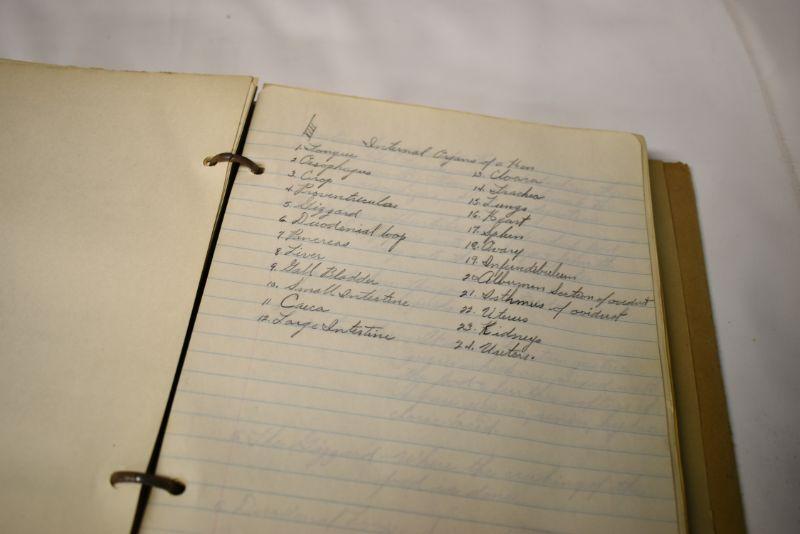 Internal Organs of a Hen
1. Tongue
2. Oesophagus
3. Crop
4. Proventriculas
5. Gizzard
6. Duodenial loop
7. Pancreas
8. Liver
9. Gall Bladder
10. Small Intestine
11. Caeca
12. Large Intestine
13. Cloaca
14. Trachea
15. Lungs
16. Heart
17. Spleen
18. Ovary
19. Infundibulum
20. Albumen Section of oviduct
21. Isthmus of oviduct
22. Uterus
23. Kidneys
24. Ureters.
The Gizzard Where the